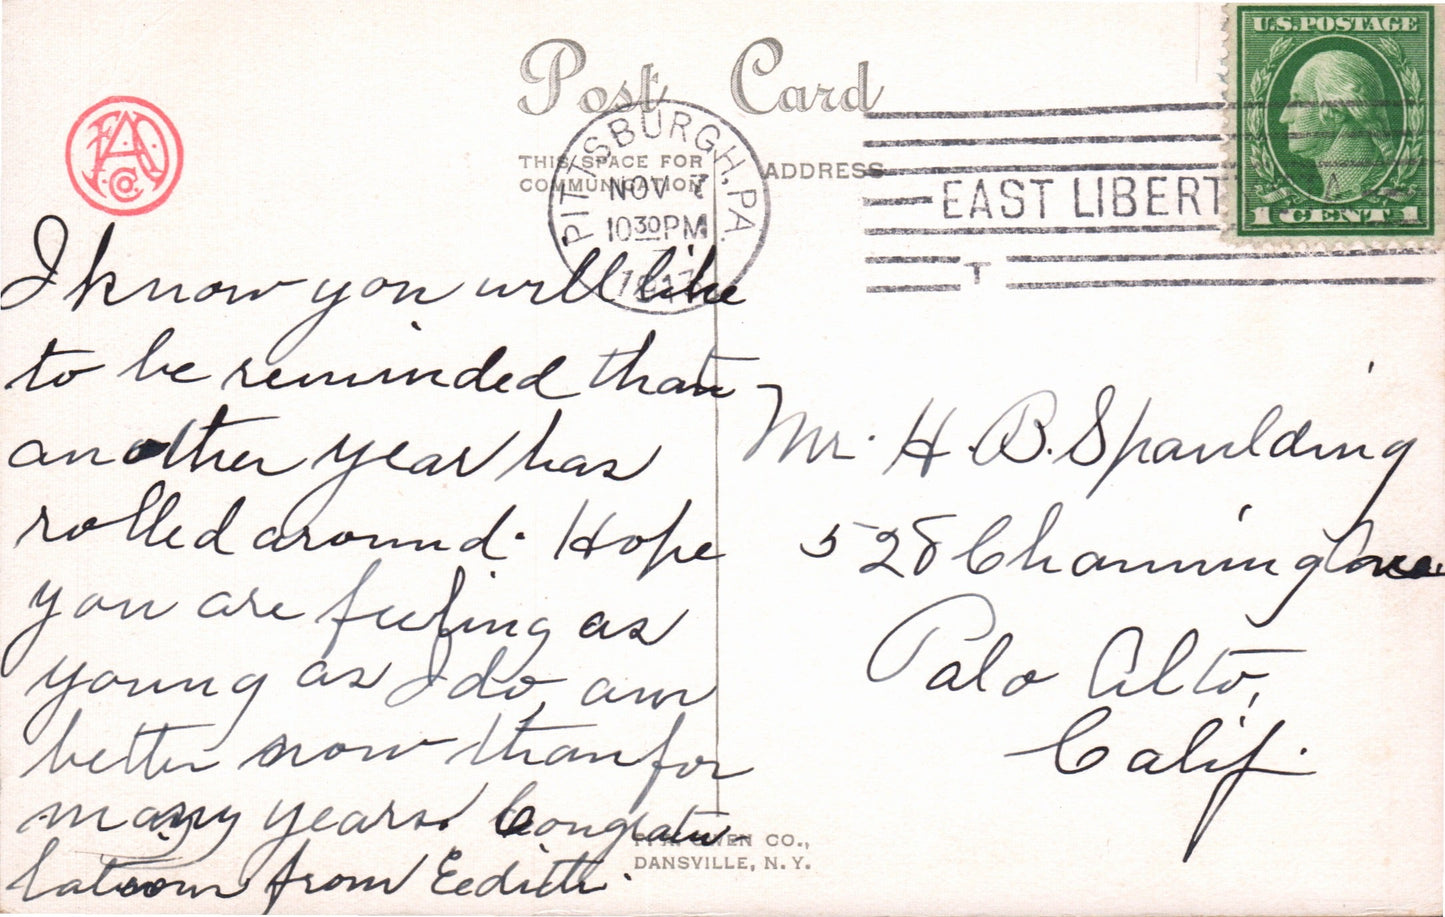 Post Card
THIS SPACE FOR
COMMUNICATION
ADDRESS
U.S. POSTAGE
1 CENT 1
PITTSBURGH, PA.
NOV 7
10 30 PM
1917
EAST LIBERT
FAO
Co.
I know you will like
to be reminded that
another year has
rolled around. Hope
you are feeling as
young as I do, am
better now than for
many years. Congratu-
lations from Eedith.
Mr. H. B. Spaulding
528 Channing Ave.
Palo Alto,
Calif.
F. A. OWEN CO.,
DANSVILLE, N. Y.